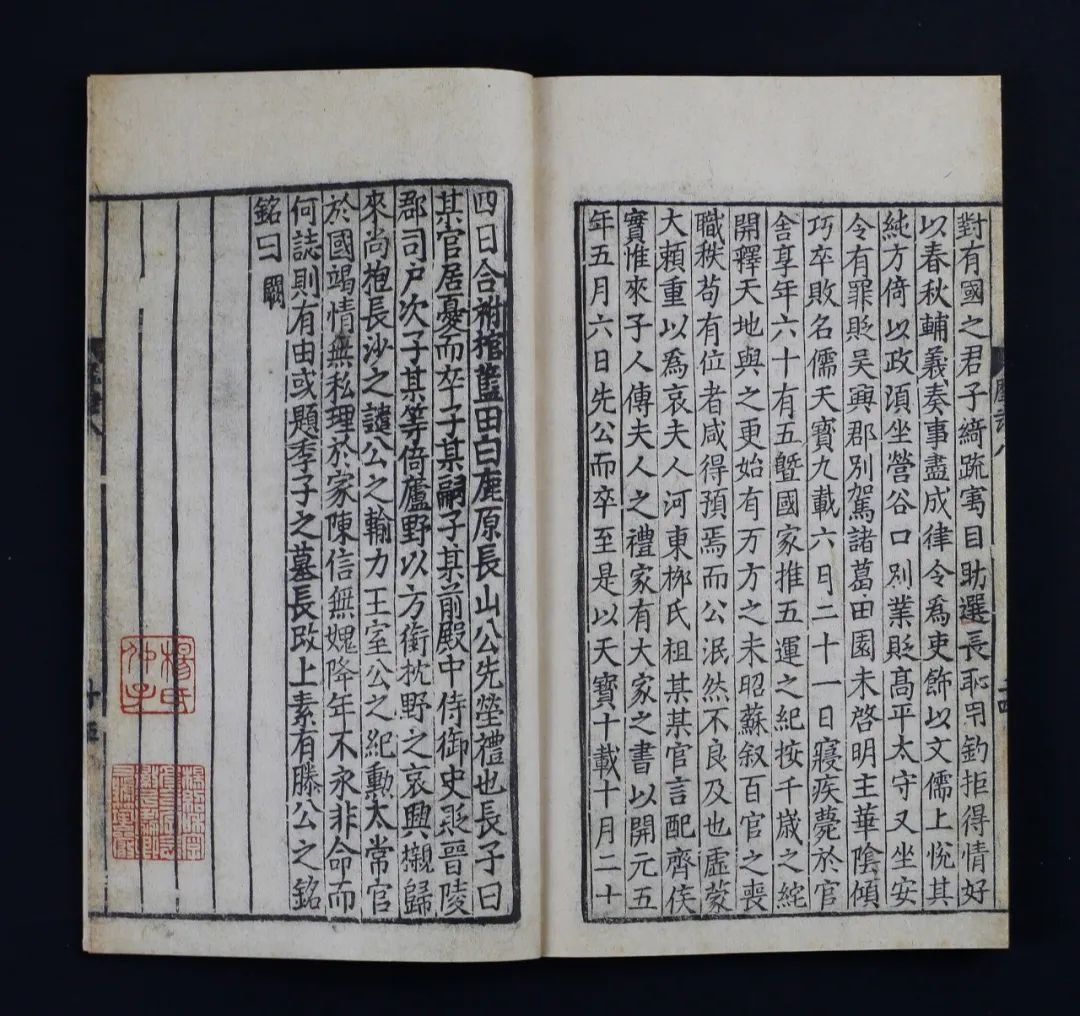 對有國之君子綺疏寓目助選長耻用鈎拒得情好
以春秋輔義奏事盡成律令爲吏飾以文儒上悅其
純方倚以政湏坐營谷口別業貶髙平太守又坐安
令有罪貶吴興郡別駕諸葛田園未啓明主華陰傾
巧卒敗名儒天寶九載六月二十一日寢疾薨於官
舎享年六十有五曁國家推五運之紀按千歳之統
開釋天地與之更始有万方之未昭蘇叙百官之喪
職秩苟有位者咸得預焉而公泯然不良及也虛蒙
大賴重以爲哀夫人河東栁氏祖某某官言配齊侯
實惟來子人傳夫人之禮家有大家之書以開元五
年五月六日先公而卒至是以天寶十載十月二十
四日合祔棺藍田白鹿原長山公先塋禮也長子曰
某官居憂而卒子某嗣子某前殿中侍御史貶晉陵
郡司户次子某等倚廬野以方銜枕野之哀興櫬歸
來尚抱長沙之譴公之輸力王室公之紀勲太常官
於國竭情無私理於家陳信無媿降年不永非命而
何誌則有由或題季子之墓長政上素有滕公之銘
銘曰闕
十四
楊氏